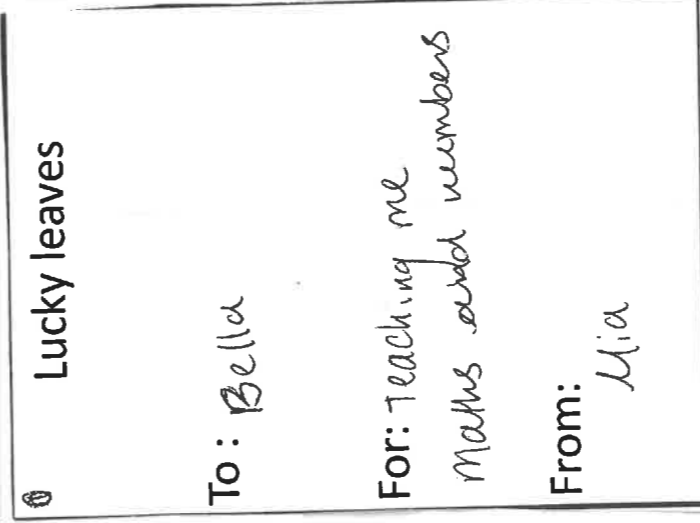 Lucky leaves
To : Bella
For: Teaching me
Maths and numbers
From:
Mia